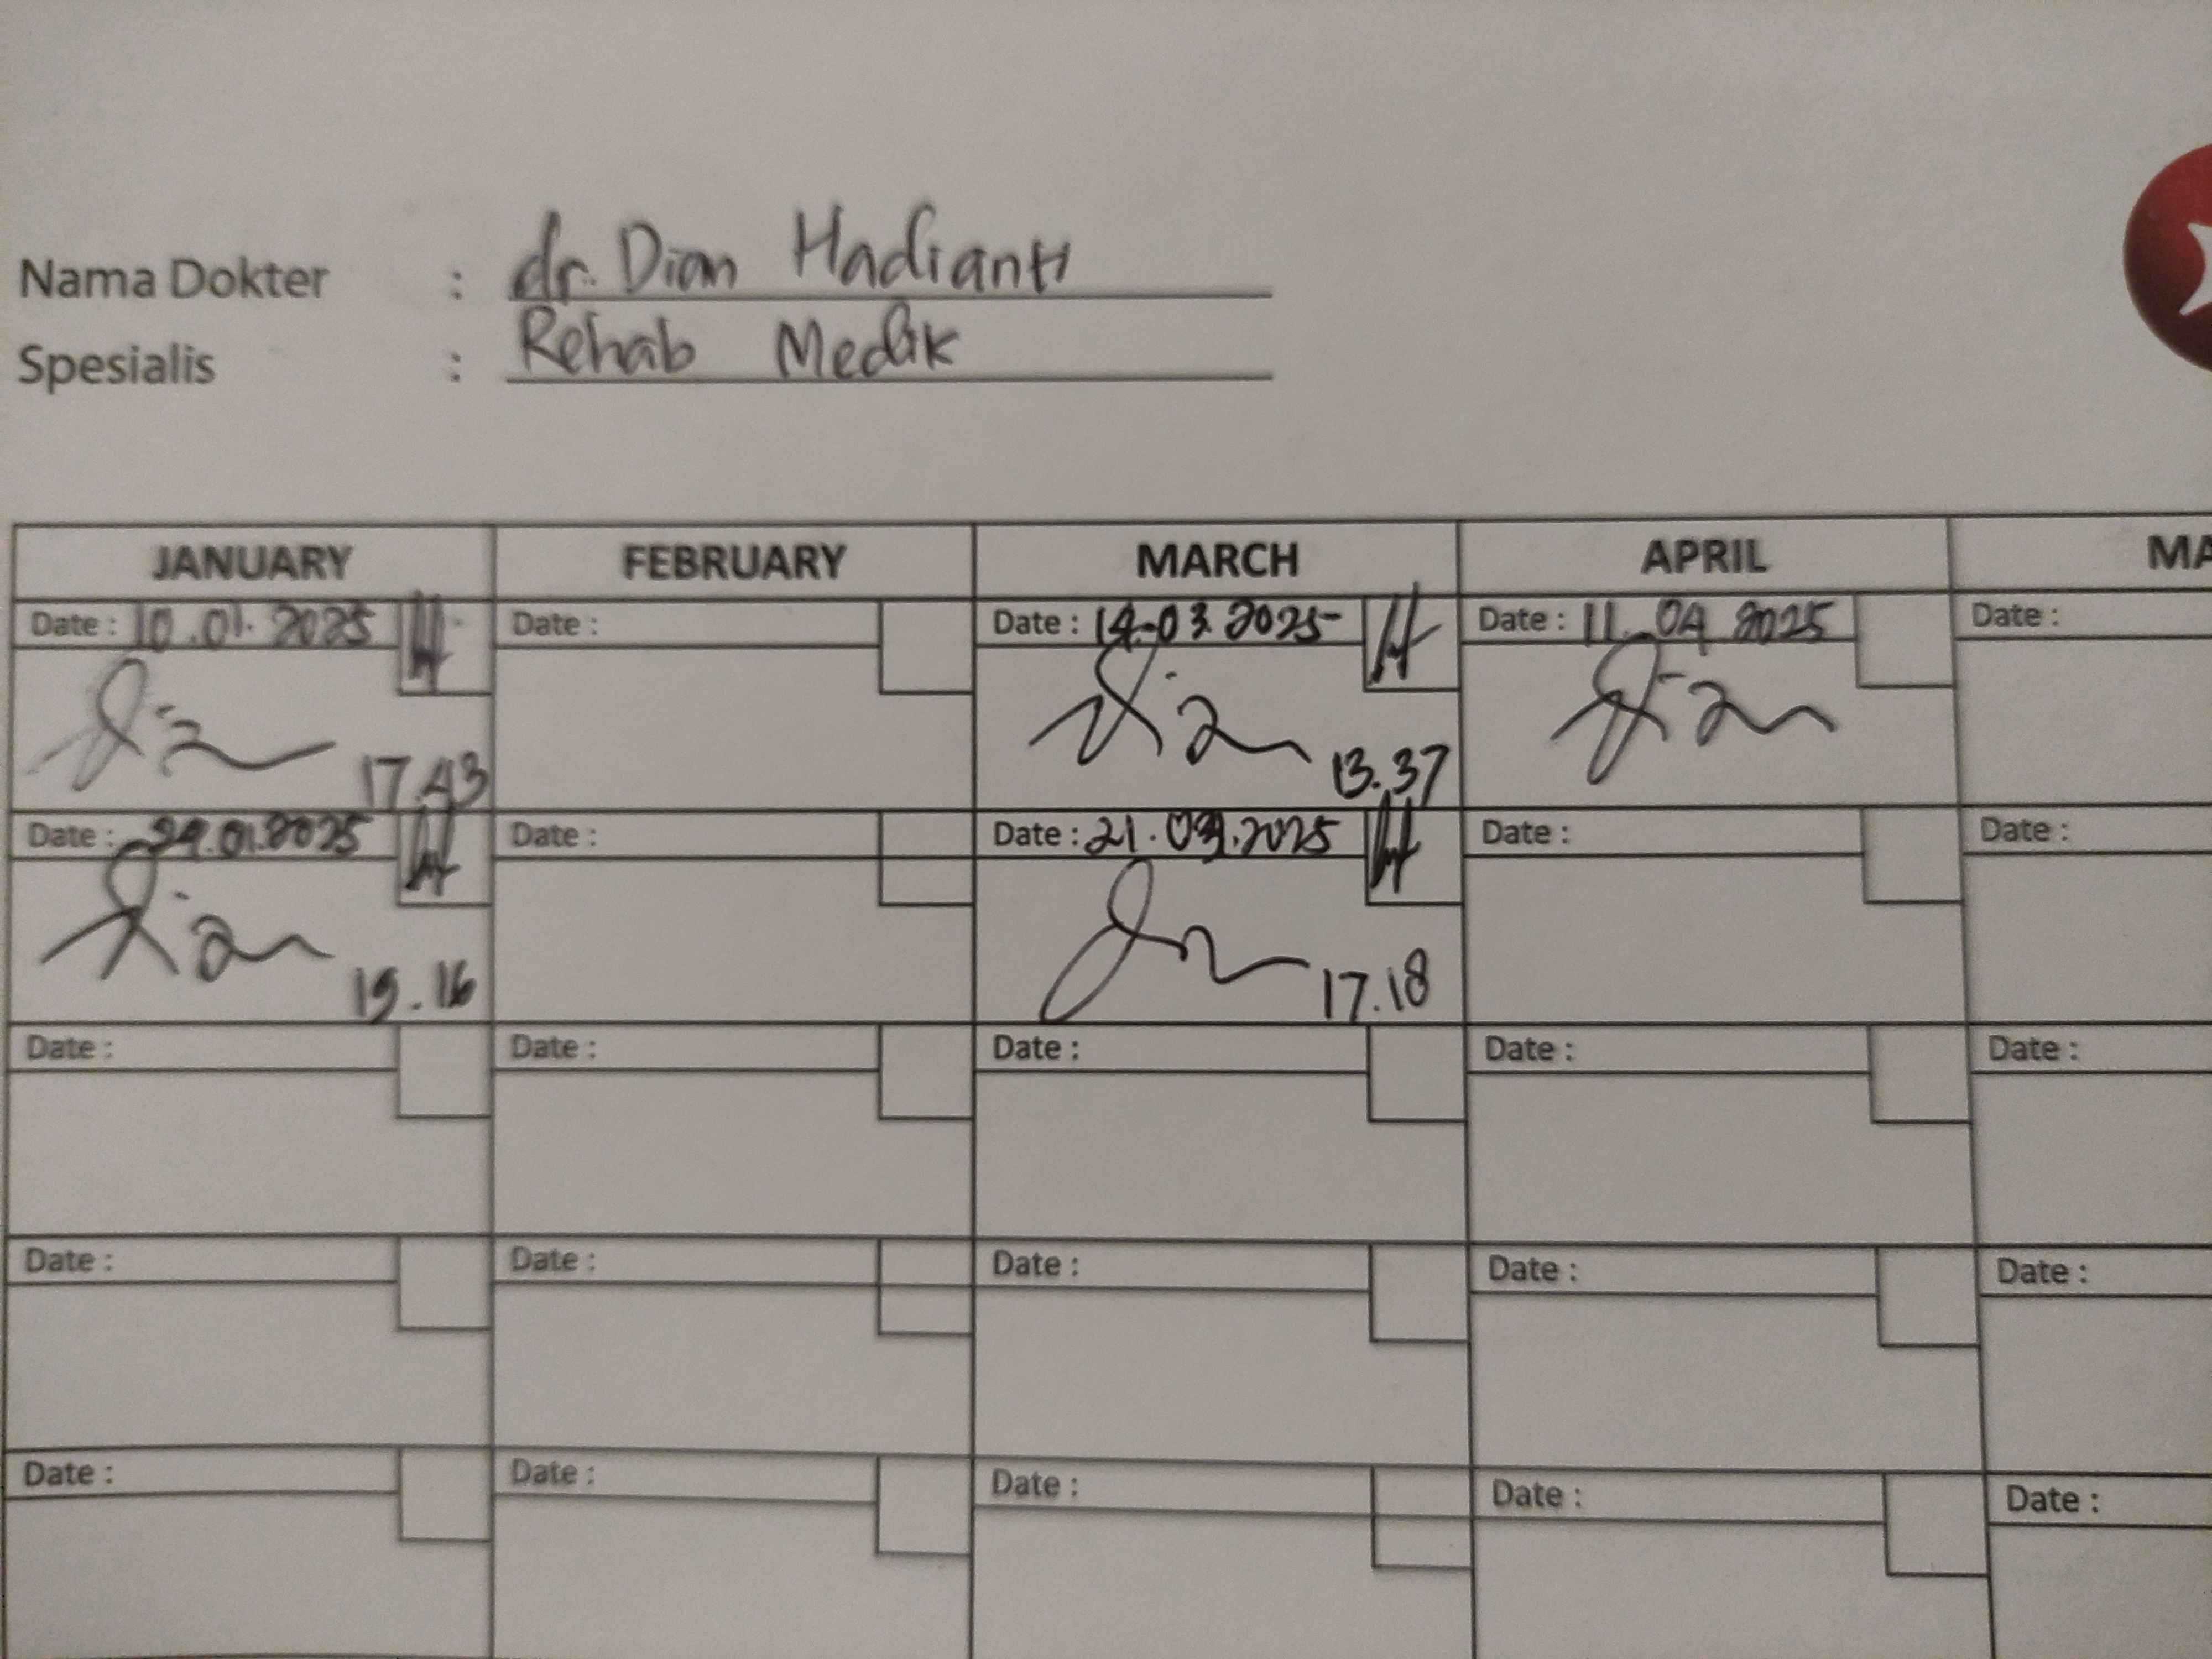 Nama Dokter : dr. Dian Hadianti
Spesialis : Rehab Medik
JANUARY FEBRUARY MARCH APRIL MA
Date : 10.01.2025 Date : Date : 14-03.2025 Date : 11.04.2025 Date :
17.43 13.37
Date : .01.2025 Date : Date : 21.03.2025 Date : Date :
Dian
.16 17.18
Date : Date : Date : Date : Date :
Date : Date : Date : Date : Date :
Date : Date : Date : Date : Date :